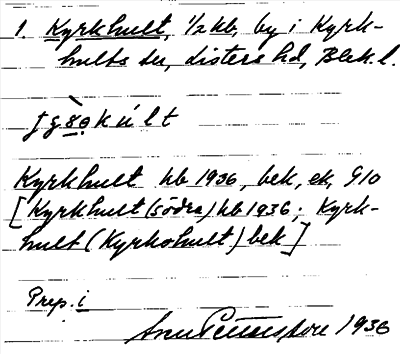 1. Kyrkhult, 1/2 hb, by i Kyrk-
hults sn, Listers hd, Blek. l.
Kyrkhult hb 1936, bek, ek, G10
[Kyrkhult (södra) hb 1936; Kyrk-
hult (Kyrkohult) bek]
Prep. i
1936